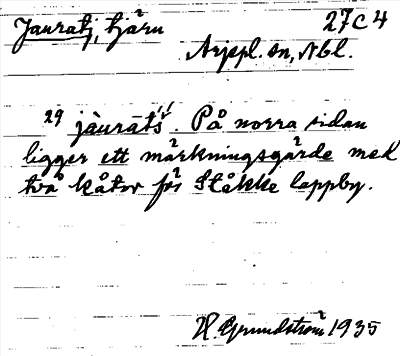 Jauratj, tjärn 27C4
Arjepl. sn, Nbl.
29 jàurātš́. På norra sidan
ligger ett märkningsgärde med
två kåtor för Ståkke lappby.
H. Grundström 1935